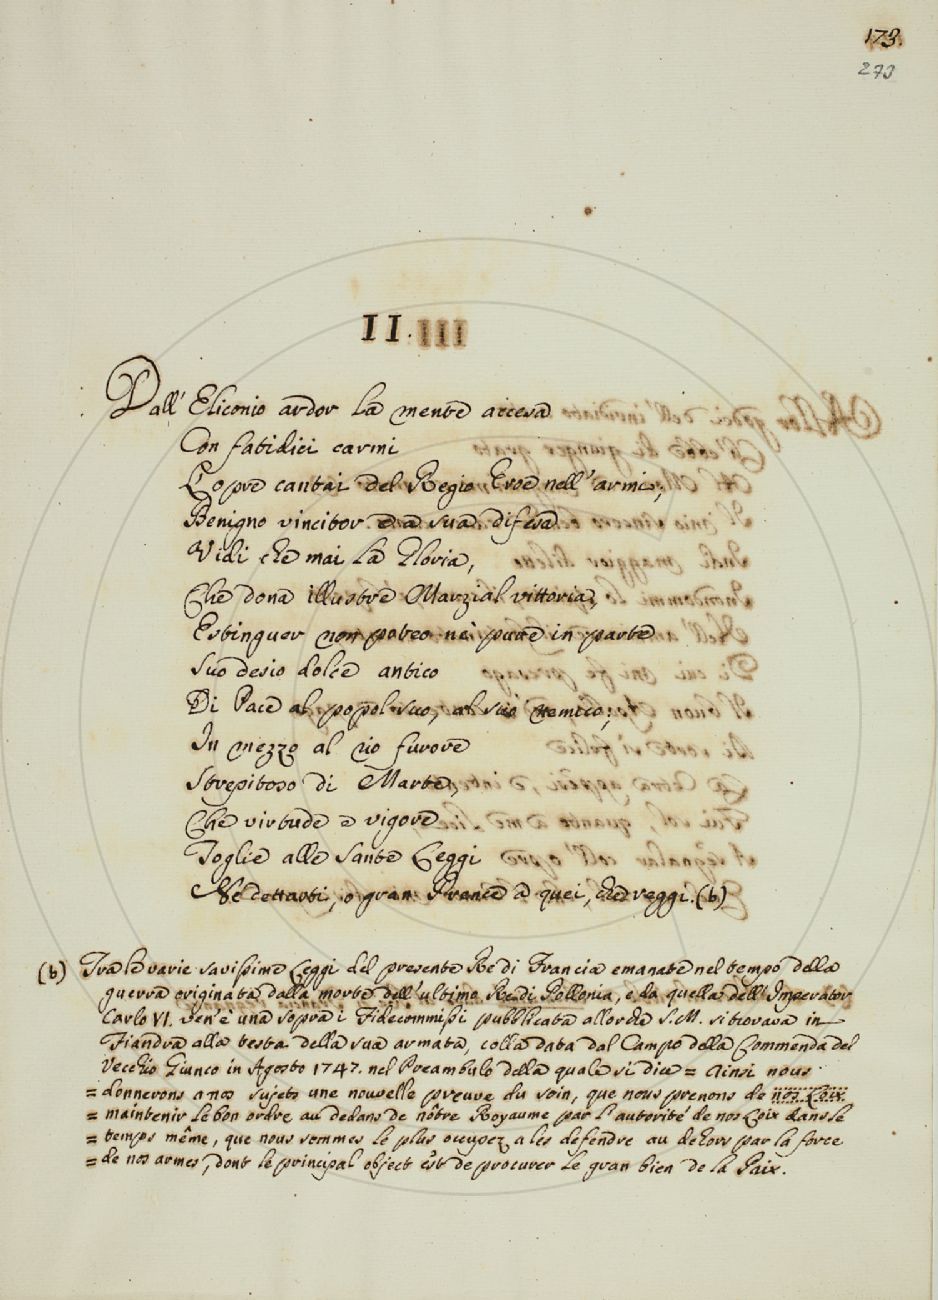 173.
273
II.
Dall' Eliconio ardor la mente accesa
Con fatidici carmi
L'opre cantai del Regio Eroe nell' armi,
Benigno vincitor e a sua difesa
Vidi che mai la Gloria,
Che dona illustre Marzial vittoria,
Estinguer non poteo nè pure in parte
Suo desio dolce antico
Di Pace al popol suo, al suo nemico;
In mezzo al rio furore
Strepitoso di Marte,
Che virtude e vigore
Toglie alle Sante Leggi
Se dettarti, o gran Prence a quei, che reggi. (b)
(b) Tra le varie savissime Leggi del presente Re di Francia emanate nel tempo della
guerra originata dalla morte dell' ultimo Re di Pollonia, e da quella dell' Imperator
Carlo VI. ven' è una sopra i Fidecommissi pubblicata allorchè S. M. si trovava in
Fiandra alla testa della sua armata, colla data dal Campo della Commenda del
Vecchio Giunco in Agosto 1747. nel Preambulo della quale si dice = Ainsi nous
= donnerons a nos sujets une nouvelle preuve du soin, que nous prenons de nos Loix
= maintenir le bon ordre au dedans de nôtre Royaume par l'autorité de nos Loix dans le
= temps même, que nous sommes le plus occupez a les defendre au dehors par la force
= de nos armes, dont le principal object est de procurer le gran bien de la Paix.